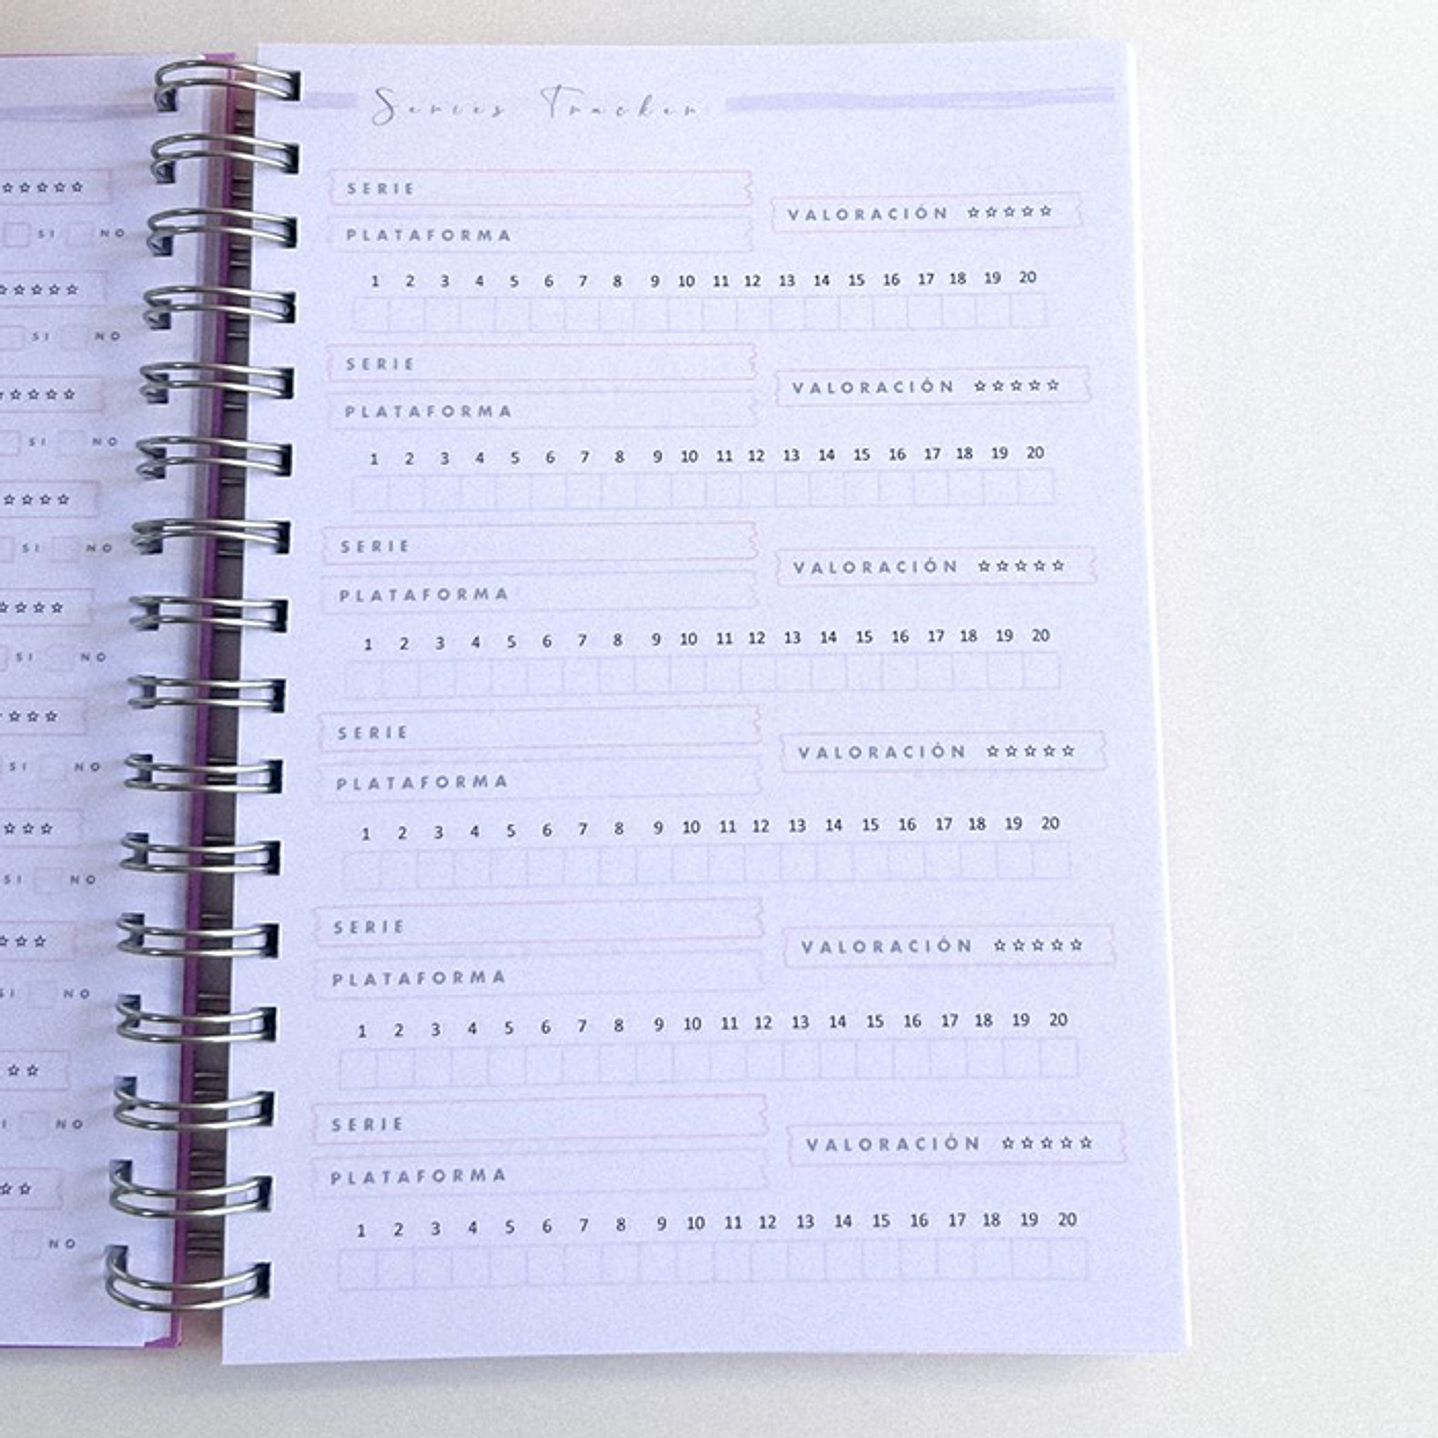 ☆☆☆☆☆
SI NO
☆☆☆☆☆
SI NO
☆☆☆☆☆
SI NO
☆☆☆☆
SI NO
☆☆☆☆
SI NO
☆☆☆☆
SI NO
☆☆☆
SI NO
☆☆☆
SI NO
☆☆
I NO
☆☆
NO
Series Tracker
SERIE
VALORACIÓN ☆☆☆☆☆
PLATAFORMA
1 2 3 4 5 6 7 8 9 10 11 12 13 14 15 16 17 18 19 20
SERIE
VALORACIÓN ☆☆☆☆☆
PLATAFORMA
1 2 3 4 5 6 7 8 9 10 11 12 13 14 15 16 17 18 19 20
SERIE
VALORACIÓN ☆☆☆☆☆
PLATAFORMA
1 2 3 4 5 6 7 8 9 10 11 12 13 14 15 16 17 18 19 20
SERIE
VALORACIÓN ☆☆☆☆☆
PLATAFORMA
1 2 3 4 5 6 7 8 9 10 11 12 13 14 15 16 17 18 19 20
SERIE
VALORACIÓN ☆☆☆☆☆
PLATAFORMA
1 2 3 4 5 6 7 8 9 10 11 12 13 14 15 16 17 18 19 20
SERIE
VALORACIÓN ☆☆☆☆☆
PLATAFORMA
1 2 3 4 5 6 7 8 9 10 11 12 13 14 15 16 17 18 19 20